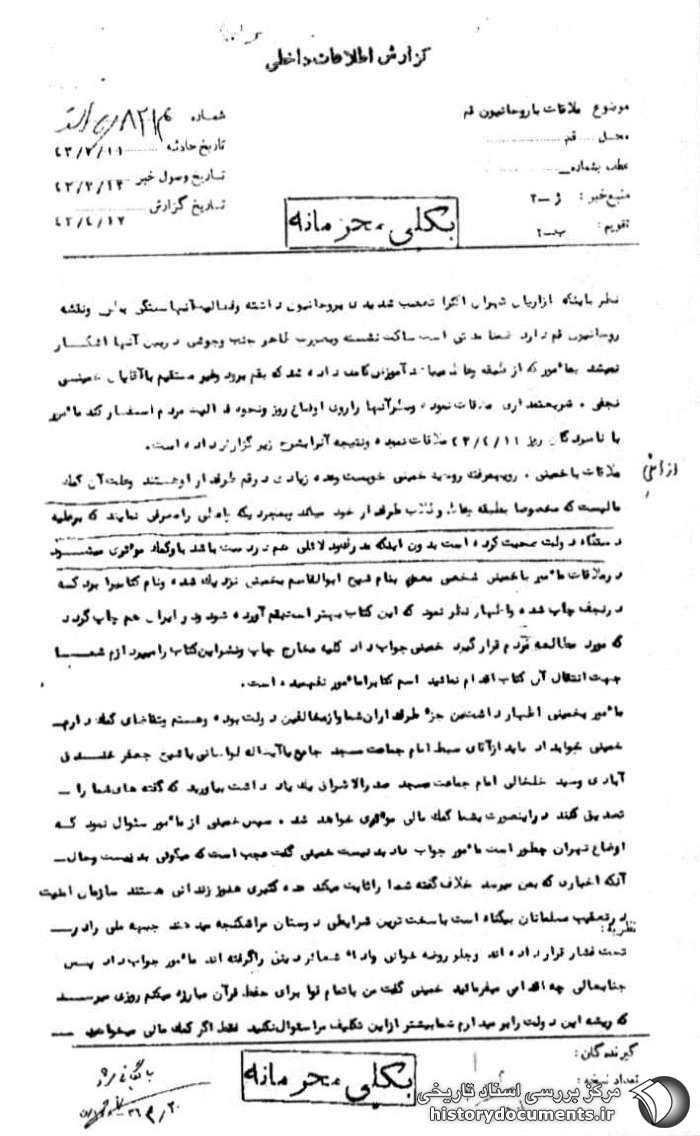 گزارش اطلاعات داخلی
موضوع ملاقات با روحانیون قم
شماره
محل قم
تاریخ حادثه ۴۳/۴/۱۱
عطف بشماره
تاریخ وصول خبر ۴۳/۴/۱۳
منبع خبر : ژ - ۲
تاریخ گزارش ۴۳/۴/۱۷
تقویم : ب - ۲
بکلی محرمانه
نظر باینکه بازاریان تهران اکثرا تعصب شدیدی بروحانیون داشته وفعالیت آنها بستگی به ونقشه
روحانیون قم دارد ضمنا مدتی است ساکت نشسته وبصورت ظاهر جنب وجوشی دربین آنها آشکار
نمیشد بمأمور که از طبقه میباشد آموزش کامل داده شد که بقم برود وغیر مستقیم باآقایان خمینی
نجفی ، شریعتمداری ملاقات نموده ونظر آنها را روی اوضاع روز ونحوه فعالیت مردم استفسار کند مأمور
با نامبردگان روز ۴۳/۴/۱۱ ملاقات نموده ونتیجه آنرا بشرح زیر گزارش داده است .
ملاقات باخمینی . رویهمرفته روحیه خمینی خوبست وعده زیادی در قم طرفدار او هستند وعلت آن کمک
مالیست که مخصوصا بطبقه وطلاب طرفدار خود میکند بمجرد یکه را معرفی نمایند که برعلیه
دستگاه دولت صحبت کرده است بدون اینکه مدرک ودلائلی هم در دست باشد باو کمک مؤثری میشود
درملاقات مأمور باخمینی شخصی معمم بنام شیخ ابوالقاسم بخمینی نزدیک شده ونام کتابیرا برد که
در نجف چاپ شده واظهار نظر نمود که این کتاب بهتر است بقم آورده شود ودر ایران هم چاپ گردد
که مورد مطالعه مردم قرار گیرد خمینی جواب داد کلیه مخارج چاپ ونشر این کتاب را میپردازم شما
جهت انتقال آن کتاب اقدام نمائید اسم کتابرا مأمور نفهمیده است .
مأمور بخمینی اظهار داشت من جزء طرفداران شما واز مخالفین دولت بوده وهستم وتقاضای کمک دارم
خمینی جوابداد باید از آقای سبط امام جماعت مسجد جامع یا آیت اله لواسانی یا شیخ جعفر خندق
آبادی وسید خلخالی امام جماعت مسجد صدرالاشراف یک یادداشت بیاورید که گفته های شما را
تصدیق کنند دراینصورت بشما کمک مالی مؤثری خواهد شد ، سپس خمینی از مأمور سئوال نمود که
اوضاع تهران چطور است مأمور جواب داد بد نیست خمینی گفت عجب است که میگوئی بد نیست وحال
آنکه اخباری که بمن میرسد خلاف گفته شما را ثابت میکند عده کثیری هنوز زندانی هستند سازمان امنیت
درتعقیب مسلمانان بیگناه است با سخت ترین شرایطی دوستان مرا شکنجه میدهند جبهه ملی را در
نظریه :
تحت فشار قرار داده اند وجلو روضه خوانی واداء شعائر دینی را گرفته اند مأمور جواب داد پس
جنابعالی چه اقدامی میفرمائید خمینی گفت من با تمام قوا برای حفظ قرآن مبارزه میکنم روزی میرسد
که ریشه این دولت را بر میدارم شما بیشتر از این تکلیف مرا سئوال نکنید فقط اگر کمک مالی میخواهید
گیرندگان :
تعداد نسخه :
بکلی محرمانه
مرکز بررسی اسناد تاریخی
historydocuments.ir